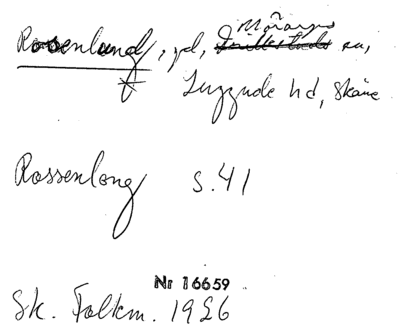 Rosenlund, gd, Mörarps sn,
Luggude hd, Skåne
Rossenlong s. 41
Nr 16659
Sk. Folkm. 1926